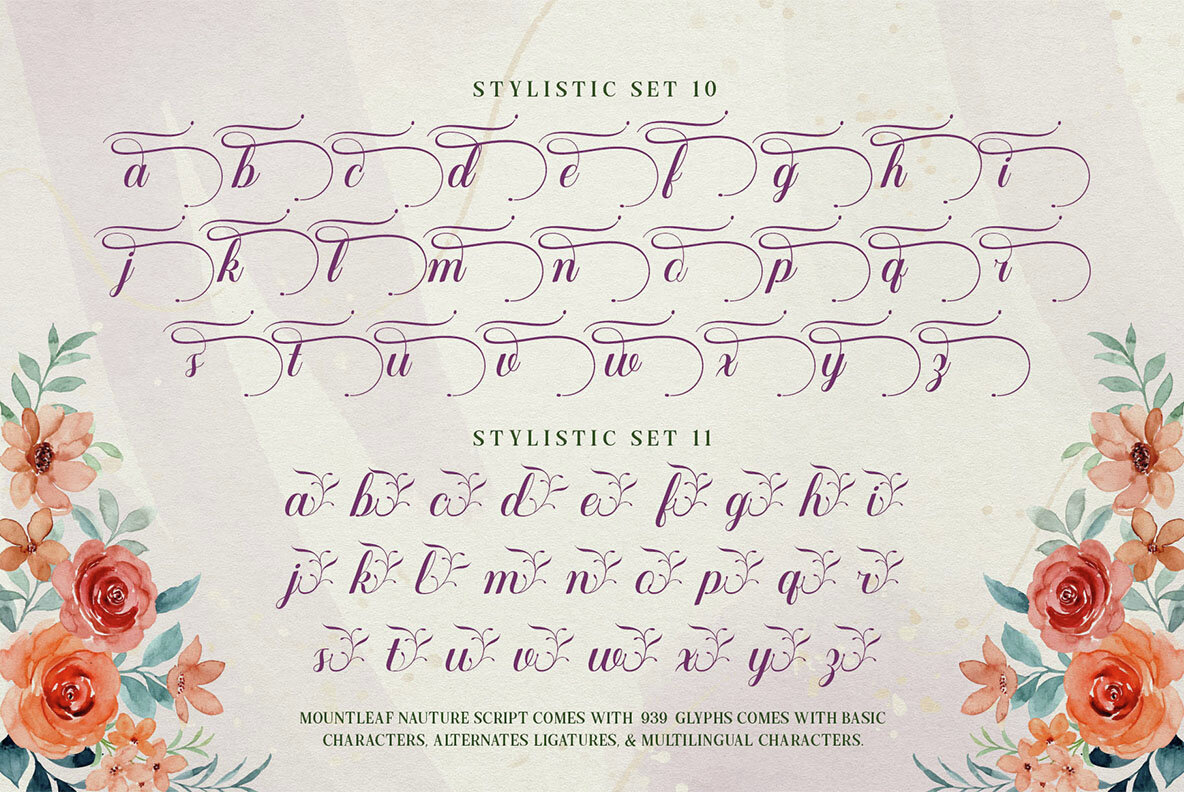 STYLISTIC SET 10
a b c d e f g h i
j k l m n o p q r
s t u v w x y z
STYLISTIC SET 11
a b c d e f g h i
j k l m n o p q r
s t u v w x y z
MOUNTLEAF NAUTURE SCRIPT COMES WITH 939 GLYPHS COMES WITH BASIC
CHARACTERS, ALTERNATES LIGATURES, & MULTILINGUAL CHARACTERS.